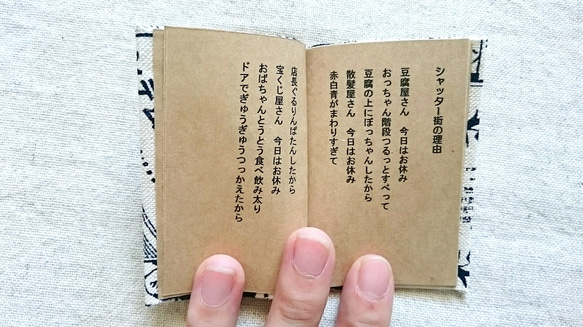 シャッター街の理由
豆腐屋さん　今日はお休み
おっちゃん階段つるっとすべって
豆腐の上にぼっちゃんしたから
散髪屋さん　今日はお休み
赤白青がまわりすぎて
店長ぐるりんぱたんしたから
宝くじ屋さん　今日はお休み
おばちゃんとうとう食べ飲み太り
ドアでぎゅうぎゅうつっかえたから